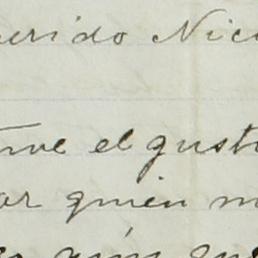 querido Nic
tuve el gusto
por quien m